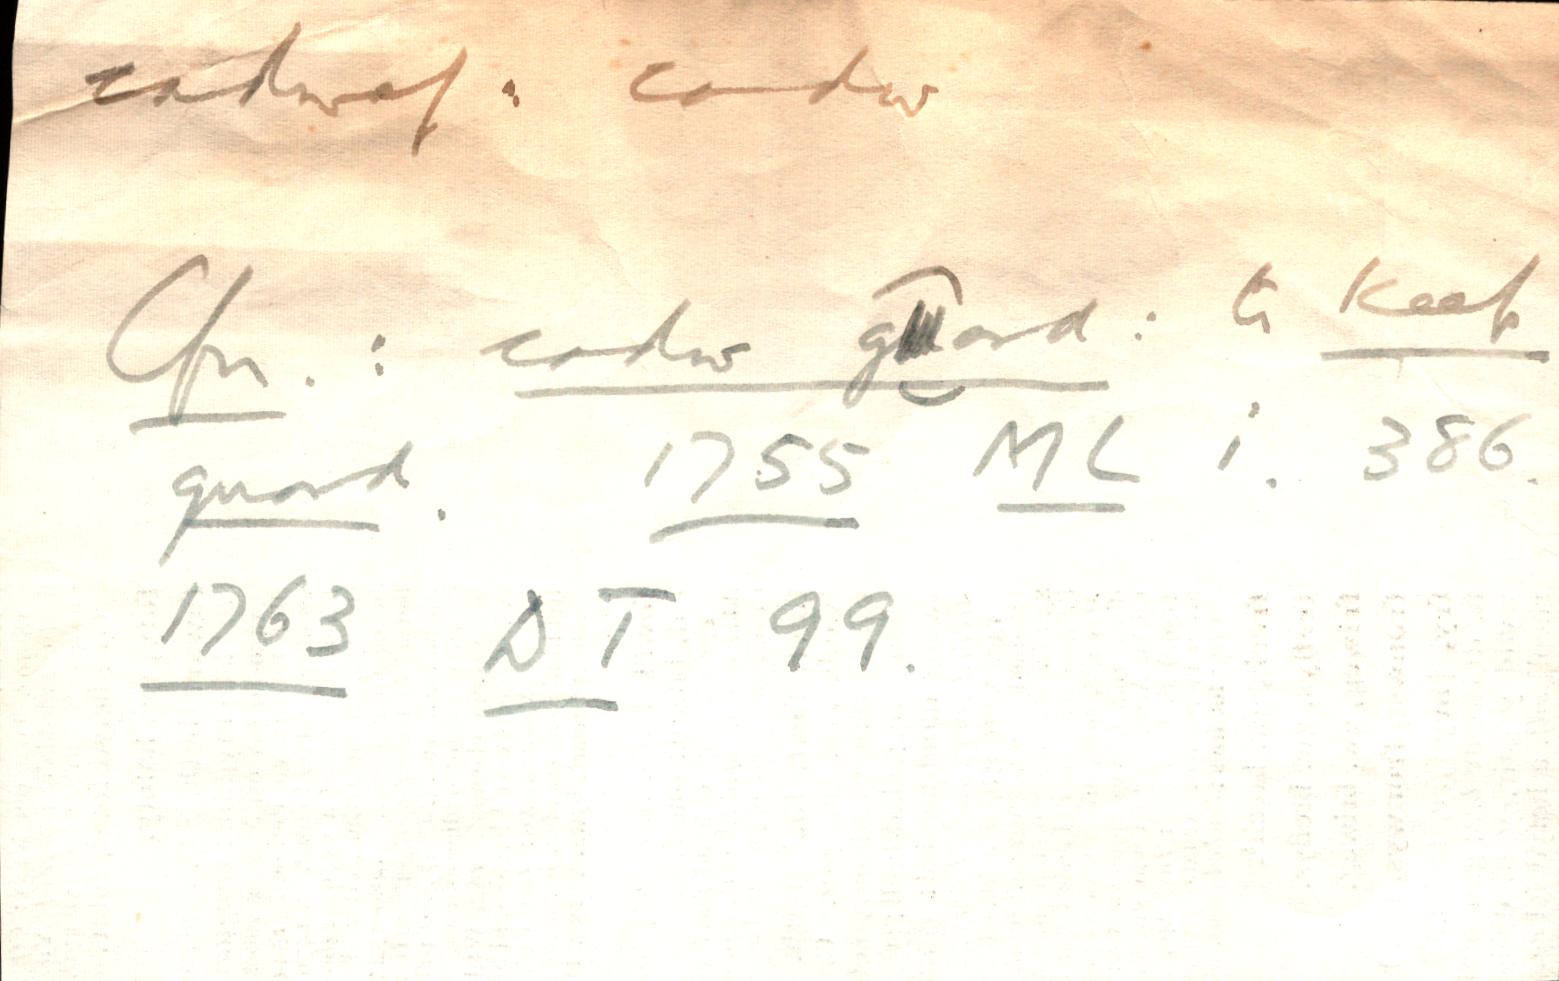 cadwaf : cadw
Cfn. : cadw gard : to keep
guard. 1755 ML i. 386.
1763 DT 99.